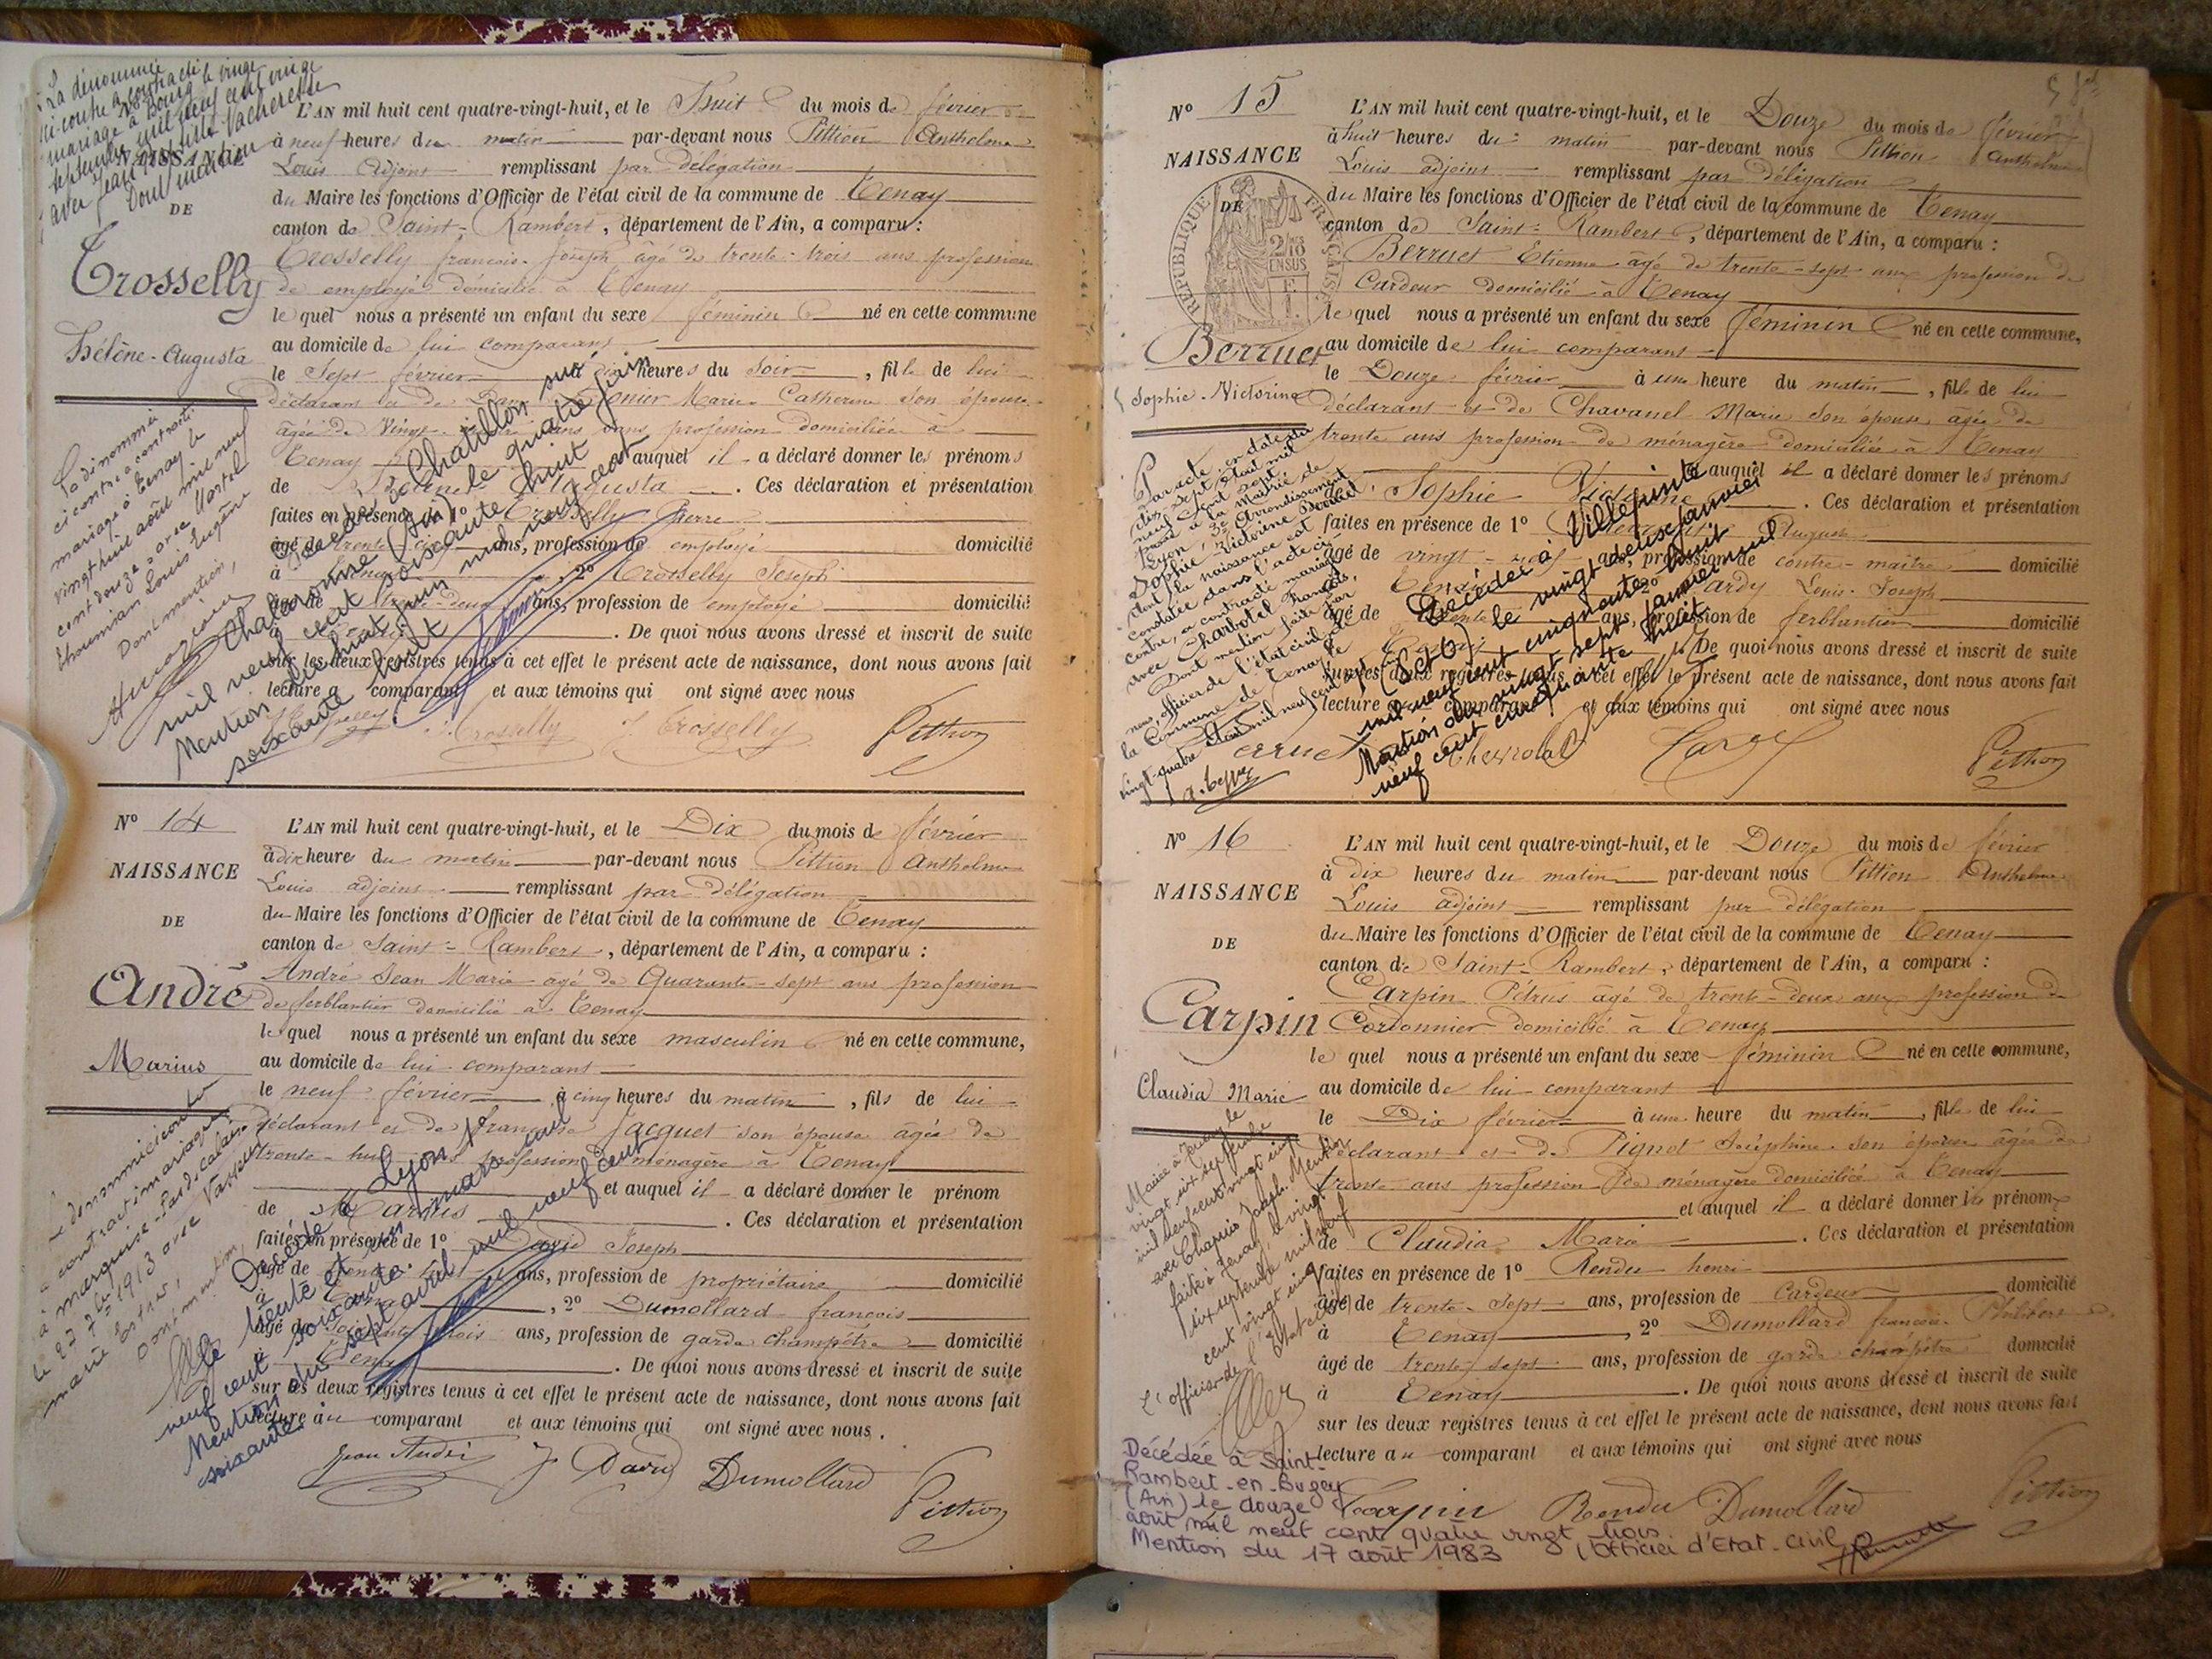 La dénommée
ci-contre a contracté
mariage à Bourg le vingt
septembre mil neuf cent vingt
avec Jean Baptiste Vacheresse
Dont mention
NAISSANCE
DE
Trosselly
Hélène-Augusta
L'AN mil huit cent quatre-vingt-huit, et le Huit du mois de février
à neuf heures du matin par-devant nous Pittion Anthelme
Louis adjoint remplissant par délégation
du Maire les fonctions d'Officier de l'état civil de la commune de Tenay
canton de Saint-Rambert, département de l'Ain, a comparu :
Trosselly françois-Joseph âgé de trente-trois ans profession
de employé domicilié à Tenay
lequel nous a présenté un enfant du sexe féminin né en cette commune
au domicile de lui comparant
le Sept février heures du soir, fille de lui
déclarant et de Marie Catherine son épouse
âgée de vingt ans sans profession domiciliée à
Tenay auquel il a déclaré donner les prénoms
de Augusta. Ces déclaration et présentation
faites en présence de 1° Trosselly Pierre
âgé de trente ans, profession de employé domicilié
à Tenay, 2° Trosselly Joseph
âgé de trente-deux ans, profession de employé domicilié
. De quoi nous avons dressé et inscrit de suite
sur les deux registres tenus à cet effet le présent acte de naissance, dont nous avons fait
lecture au comparant et aux témoins qui ont signé avec nous
Trosselly J. Trosselly Pittion
La dénommée
ci contre a contracté
mariage à Tenay le
vingt huit août mil neuf
cent douze avec Martel
Louis Eugène
Dont mention,
Décédée à Chatillon sur
Chalaronne (Ain) le quatre juin
mil neuf cent soixante huit
Mention du huit juin mil neuf cent
soixante huit
N° 14
NAISSANCE
DE
André
Marius
L'AN mil huit cent quatre-vingt-huit, et le Dix du mois de février
à dix heures du matin par-devant nous Pittion Anthelme
Louis adjoint remplissant par délégation
du Maire les fonctions d'Officier de l'état civil de la commune de Tenay
canton de Saint-Rambert, département de l'Ain, a comparu :
André Jean Marie âgé de Quarante-sept ans profession
de ferblantier domicilié à Tenay
lequel nous a présenté un enfant du sexe masculin né en cette commune,
au domicile de lui comparant
le neuf février à cinq heures du matin, fils de lui
déclarant et de françoise Jacquet son épouse âgée de
trente-huit ans profession de ménagère à Tenay
et auquel il a déclaré donner le prénom
de Marius. Ces déclaration et présentation
faites en présence de 1° David Joseph
âgé de trente ans, profession de propriétaire domicilié
à Tenay, 2° Dumollard françois
âgé de soixante trois ans, profession de garde champêtre domicilié
à Tenay. De quoi nous avons dressé et inscrit de suite
sur les deux registres tenus à cet effet le présent acte de naissance, dont nous avons fait
lecture au comparant et aux témoins qui ont signé avec nous.
Jean André J. David Dumollard Pittion
Le dénommé ci contre
a contracté mariage
à Marquise-Pas de Calais
le 27 7bre 1913 avec
Marie
Dont mention,
Décédé à Lyon
le trente et un mars mil
neuf cent soixante
Mention du sept avril mil neuf cent
soixante
N° 15
NAISSANCE
DE
RÉPUBLIQUE FRANÇAISE
Berruet
Sophie-Victorine
L'AN mil huit cent quatre-vingt-huit, et le Douze du mois de février
à huit heures du matin par-devant nous Pittion Anthelme
Louis adjoint remplissant par délégation
du Maire les fonctions d'Officier de l'état civil de la commune de Tenay
canton de Saint-Rambert, département de l'Ain, a comparu :
Berruet Etienne âgé de trente-sept ans profession de
Cardeur domicilié à Tenay
lequel nous a présenté un enfant du sexe féminin né en cette commune,
au domicile de lui comparant
le Douze février à une heure du matin, fille de lui
déclarant et de Chavanel Marie son épouse, âgée de
trente ans profession de ménagère domiciliée à Tenay
auquel il a déclaré donner les prénoms
Sophie Victorine. Ces déclaration et présentation
faites en présence de 1° Auguste
âgé de vingt-neuf ans, profession de contre-maître domicilié
Tenay 2° Tardy Louis-Joseph
âgé de trente ans, profession de ferblantier domicilié
De quoi nous avons dressé et inscrit de suite
sur les deux registres tenus à cet effet le présent acte de naissance, dont nous avons fait
lecture au comparant et aux témoins qui ont signé avec nous
Berruet Chevrolat Tardy Pittion
Par acte en date du
dix sept août mil
neuf cent sept
passé à la Mairie de
Lyon, 3e Arrondissement
Sophie Victorine Berruet
dont la naissance est
constatée dans l'acte ci-
contre, a contracté mariage
avec Charbotel François,
Dont mention faite par
nous, officier de l'état civil de
la Commune de Tenay le
vingt-quatre août mil neuf cent sept
Décédée à Villepinte
(S et O) le vingt deux janvier
mil neuf cent cinquante huit
Mention du vingt sept janvier mil
neuf cent cinquante huit
N° 16
NAISSANCE
DE
Carpin
Claudia Marie
L'AN mil huit cent quatre-vingt-huit, et le Douze du mois de février
à dix heures du matin par-devant nous Pittion Anthelme
Louis adjoint remplissant par délégation
du Maire les fonctions d'Officier de l'état civil de la commune de Tenay
canton de Saint-Rambert, département de l'Ain, a comparu :
Carpin Pétrus âgé de trente-deux ans profession de
Cordonnier domicilié à Tenay
lequel nous a présenté un enfant du sexe féminin né en cette commune,
au domicile de lui comparant
le Dix février à une heure du matin, fille de lui
déclarant et de Pignet Joséphine son épouse âgée de
trente ans profession de ménagère domiciliée à Tenay
et auquel il a déclaré donner les prénoms
de Claudia Marie. Ces déclaration et présentation
faites en présence de 1° Rendu henri
âgé de trente-sept ans, profession de Cardeur domicilié
à Tenay, 2° Dumollard françois Philibert
âgé de trente-sept ans, profession de garde champêtre domicilié
à Tenay. De quoi nous avons dressé et inscrit de suite
sur les deux registres tenus à cet effet le présent acte de naissance, dont nous avons fait
lecture au comparant et aux témoins qui ont signé avec nous
Carpin Rendu Dumollard Pittion
Mariée à Tenay le
vingt six septembre
mil neuf cent vingt cinq
avec Chapuis Joseph. Mention
faite à Tenay, le vingt
six septembre mil neuf
cent vingt cinq
L'officier de l'Etat civil
Décédée à Saint-
Rambert-en-Bugey
(Ain) le douze
août mil neuf cent quatre vingt trois.
Mention du 17 août 1983 l'officier d'Etat-Civil